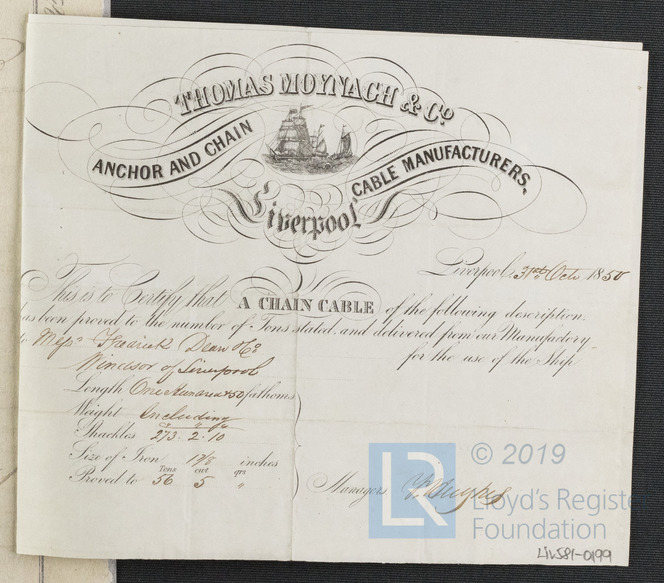 THOMAS MOYNACH & Co.
ANCHOR AND CHAIN
CABLE MANUFACTURERS.
Liverpool
Liverpool, 31st Octr 1850
This is to Certify that A CHAIN CABLE of the following description,
has been proved to the number of Tons stated, and delivered from our Manufactory
to Messrs Frederick Dean & Co
for the use of the Ship
Windsor of Liverpool
Length One Hundred & 50 fathoms
Weight Including
Shackles 273. 2. 10
Size of Iron 1 7/8 inches
Tons cwt qrs
Proved to 56 5 "
Managers
© 2019
LR
Lloyd's Register
Foundation
LIV581-0199